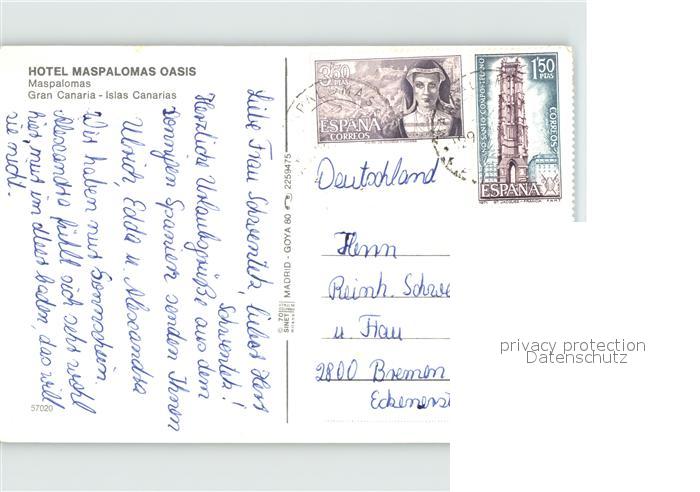 HOTEL MASPALOMAS OASIS
Maspalomas
Gran Canaria - Islas Canarias
Liebe Frau Schwentek, lieber Herr
Schwentek!
Herzliche Urlaubsgrüße aus dem
sonnigen Spanien senden Ihnen
Ulrich, Edda u. Alexandra
Wir haben nur Sonnenschein.
Alexandra fühlt sich sehr wohl
hier, nur im Meer baden, das will
sie nicht.
57020
MADRID - GOYA 80 2259475
3,50
PTAS
ESPAÑA
CORREOS
1,50
PTAS
AÑO SANTO COMPOSTELANO
CORREOS
ESPAÑA
Deutschland
Herrn
Reinh. Schwe
u. Frau
2800 Bremen
Eckenerst
privacy protection
Datenschutz